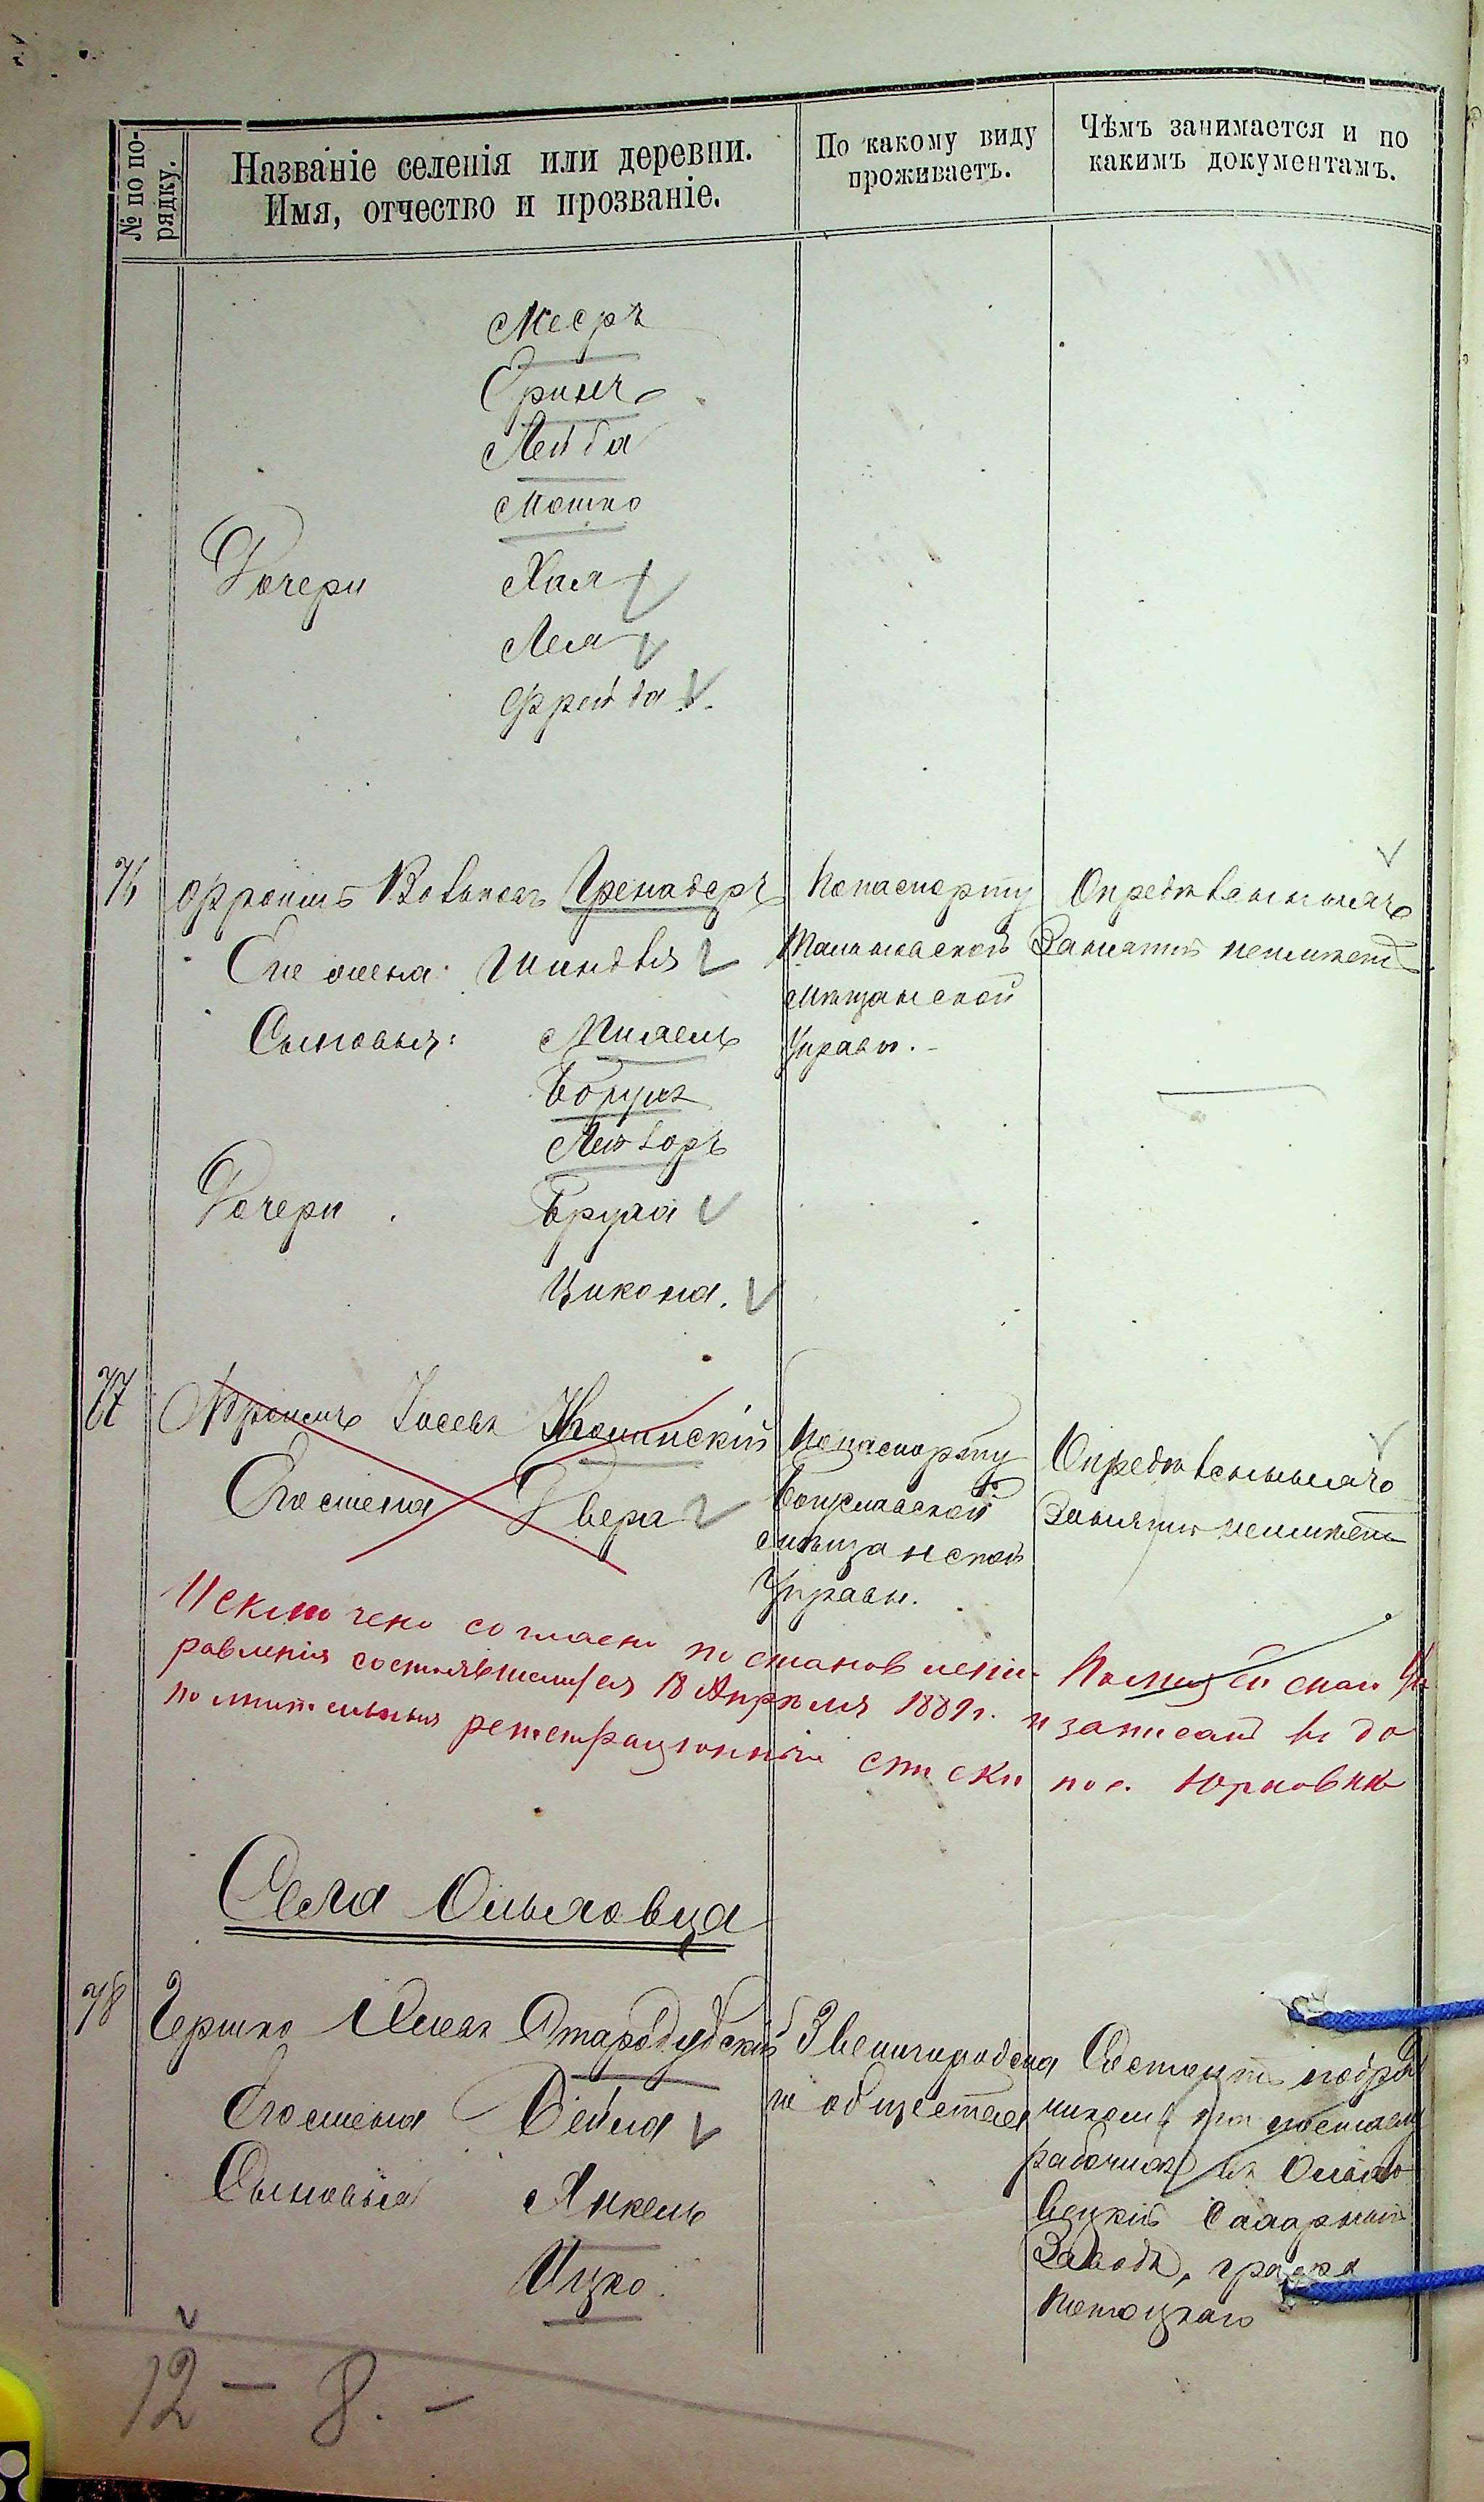 № по по-
рядку.
Названіе селенія или деревни.
Имя, отчество и прозваніе.
По какому виду
проживаетъ.
Чѣмъ занимается и по
какимъ документамъ.
Мееръ
Лейба
Мошко
Дочери Хая
Лея
Фрейда
76 Фроимъ Вовковъ Гренадеръ
Его жена: Шиндля
Сыновья: Михель
Борухъ
Лейзоръ
Дочери Бруха
Ципойра.
По паспорту
Тальновской
мѣщанской
Управы.
Опредѣленныхъ
Занятій неимѣетъ
77 Фроимъ Іосевъ
Его жена Двера
По паспорту
мѣщанской
Управы.
Опредѣленныхъ
Занятій неимѣетъ
Исключено согласно постановленію Полицейскаго Уп
равленія состоявшемуся 18 Апрѣля 1889г. и записанъ въ до
полнительные регистраціонные списки пос. Юрковки
Села Ольховца
78 Гершко Хаимъ Стародубскій
Его жена Бейла
Сыновья Янкель
Ицко.
Звенигородска
го общества
Состоитъ подряд
чикомъ по поставку
рабочихъ въ Ольхо
вецкій Сахарный
Заводъ, графа
Потоцкаго
12 - 8. -